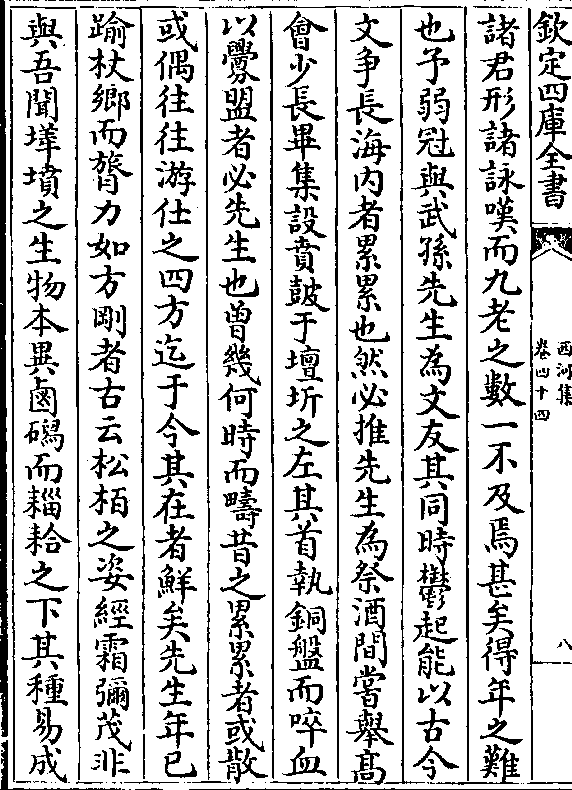 欽定四庫全書
西河集
卷四十四
八
諸君形諸詠嘆而九老之數一不及焉甚矣得年之難
也予弱冠與武孫先生為文友其同時鬱起能以古今
文争長海内者累累也然必推先生為祭酒間嘗舉高
會少長畢集設賁鼓于壇圻之左其首執銅盤而啐血
以釁盟者必先生也曾幾何時而疇昔之累累者或散
或偶往往游仕之四方迄于今其在者鮮矣先生年已
踰杖鄉而膂力如方剛者古云松栢之姿經霜彌茂非
與吾聞墳之生物本異鹵礍而耠之下其種易成